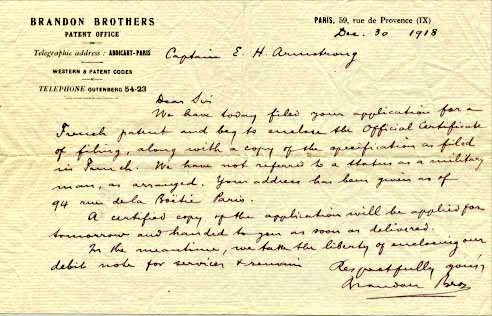 BRANDON BROTHERS
PATENT OFFICE
Telegraphic address : ABDICART-PARIS
WESTERN & PATENT CODES
TELEPHONE GUTENBERG 54-23
PARIS, 59, rue de Provence (IX)
Dec. 30 1918
Captain E. H. Armstrong
Dear Sir
We have today filed your application for a
French patent and beg to enclose the Official Certificate
of filing, along with a copy of the specification as filed
in French. We have not referred to a status as a military
man, as arranged. Your address has been given as of
94 rue de la Boëtie Paris.
A certified copy of the application will be applied for
tomorrow and handed to you as soon as delivered.
In the meantime, we take the liberty of enclosing our
debit note for services & remain
Respectfully yours,
Brandon Bros